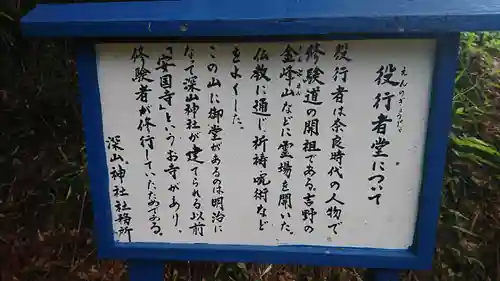 役行者堂について
えんのぎょうじゃどう
役行者は奈良時代の人物で
修験道の開祖である。吉野の
金峰山などに霊場を開いた。
仏教に通じ祈祷、呪術など
をよくした。
この山に御堂があるのは明治に
なって深山神社が建てられる以前
"安国寺"というお寺があり、
修験者が修行していたためである。
深山神社社務所